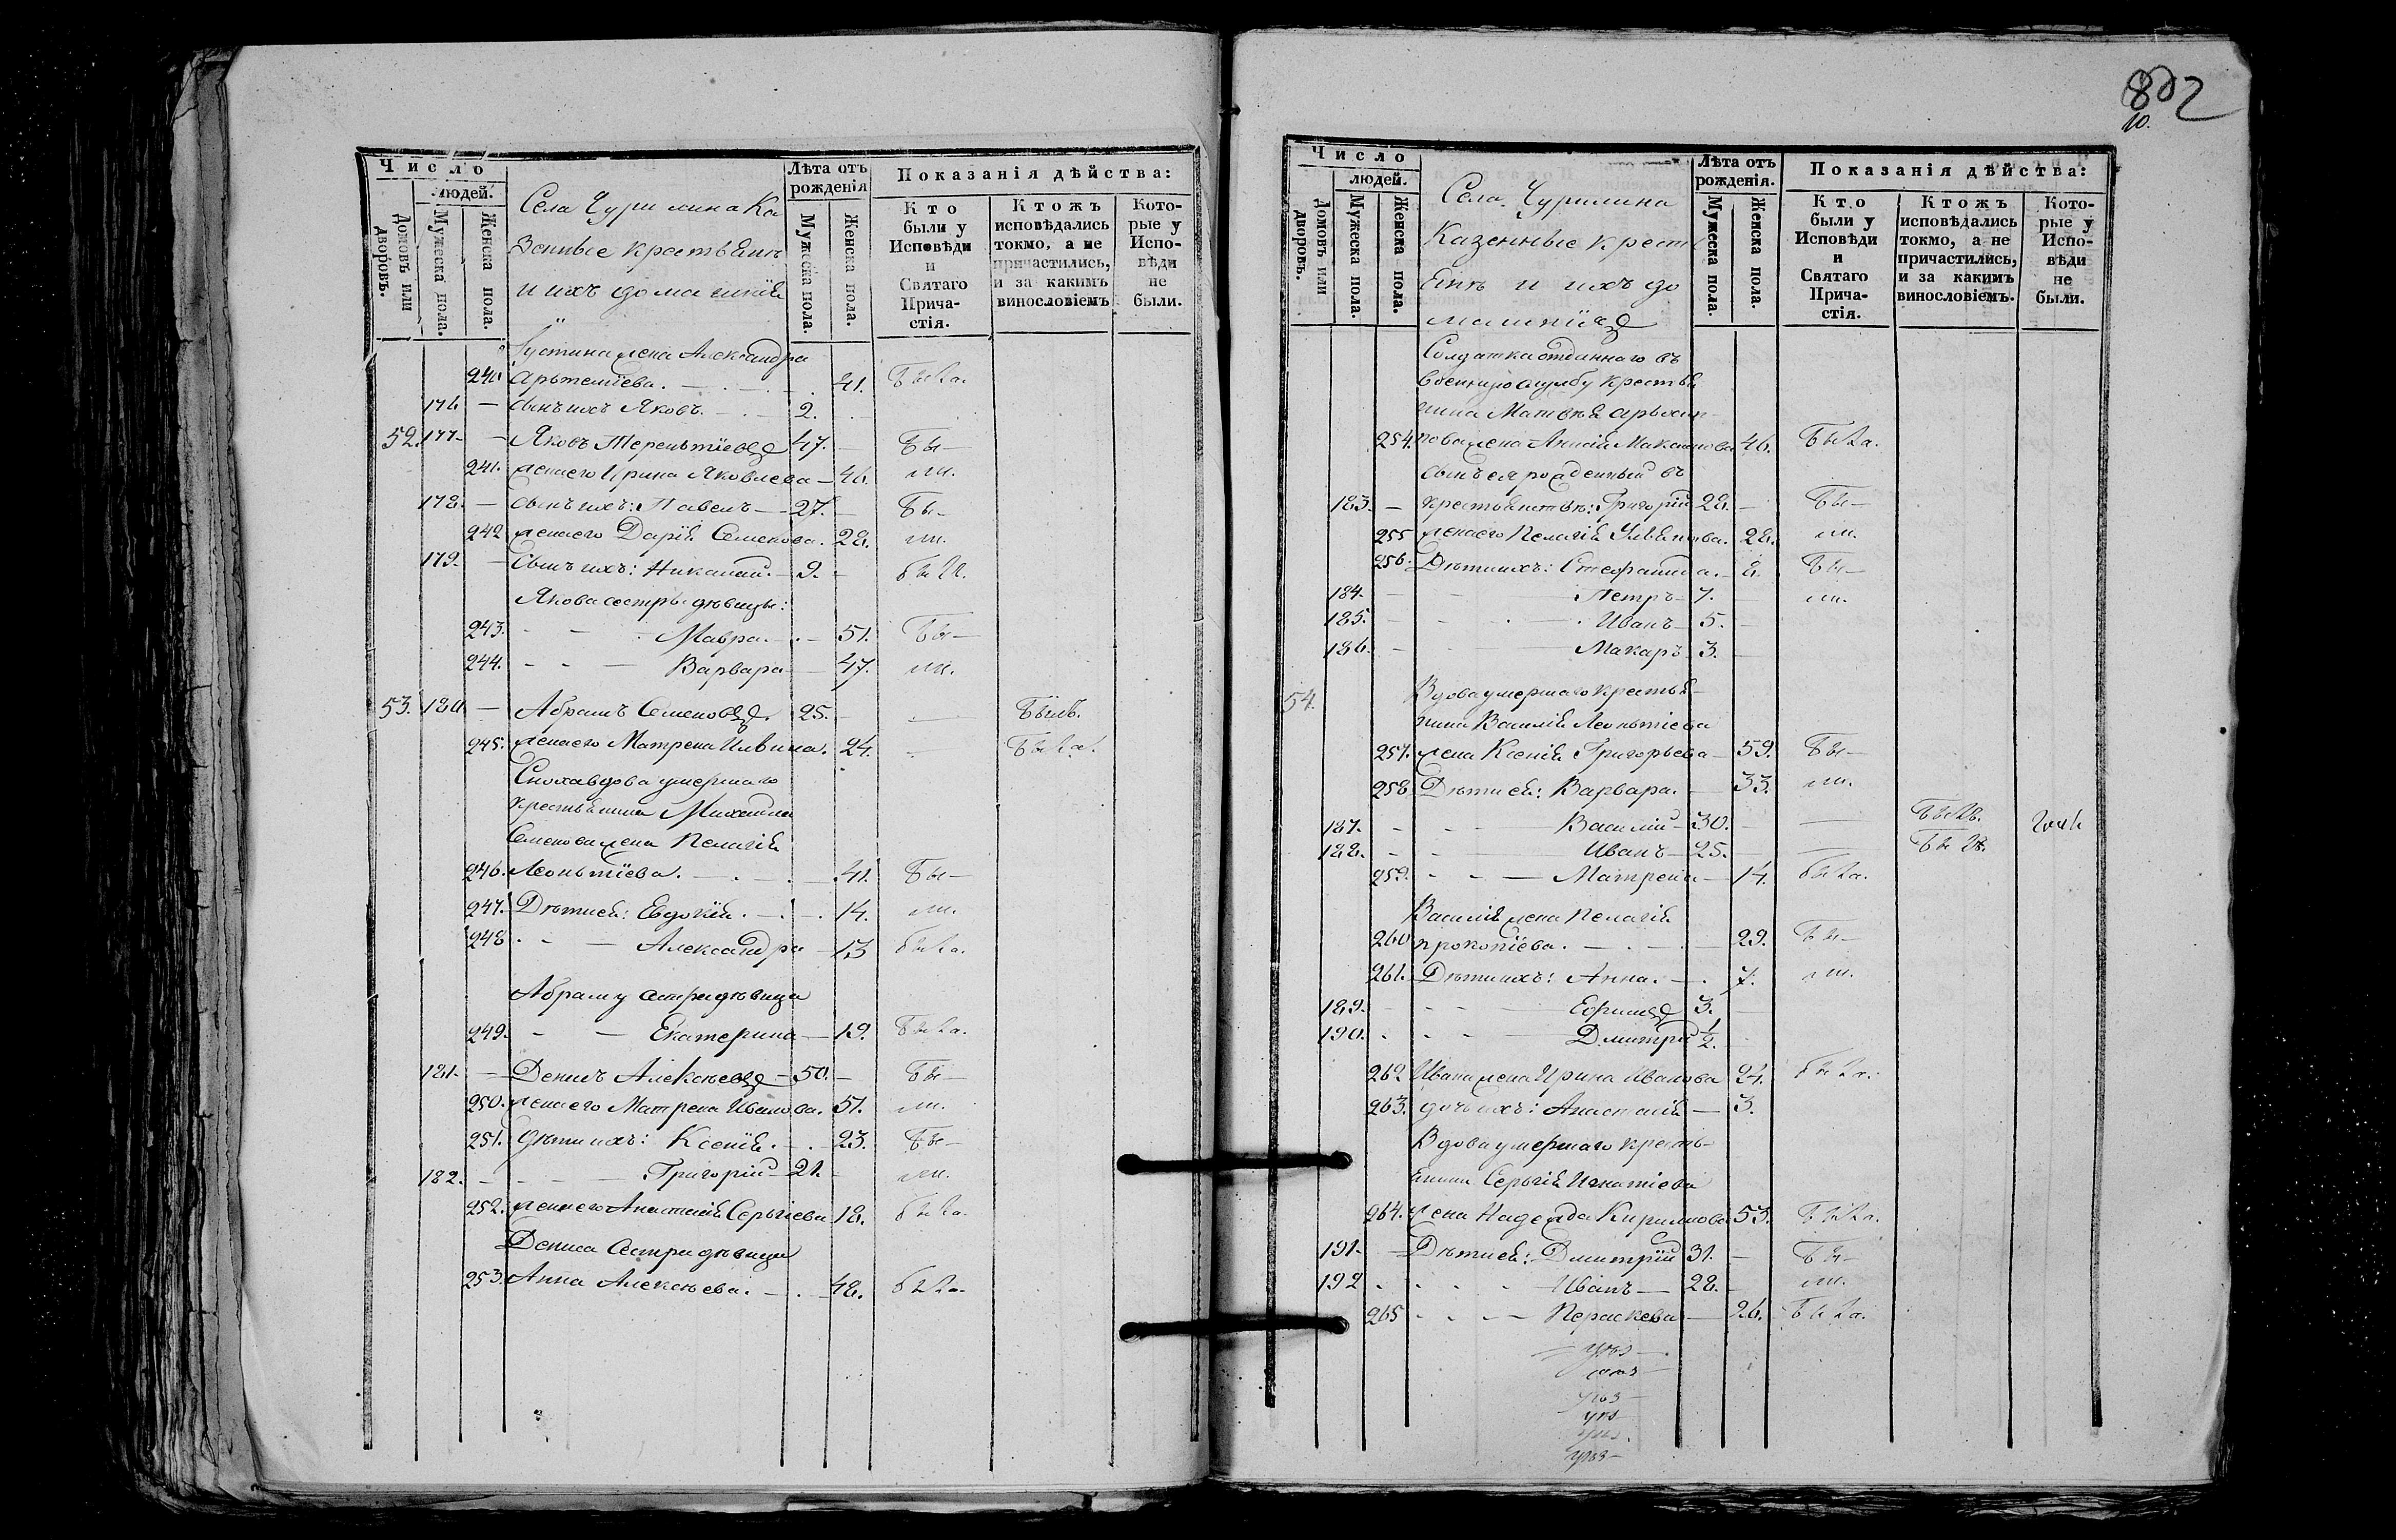 802
10.
Число
людей.
Домовъ или дворовъ.
Мужеска пола.
Женска пола.
Села Чурилина Ка
зенные крестьянѣ
и ихъ домашнія
Лѣта отъ рожденія
Мужеска пола.
Женска пола.
Показанія дѣйства:
Кто были у Исповѣди и Святаго Причастія.
Ктожъ исповѣдались токмо, а не причастились, и за какимъ винословіемъ
Которые у Исповѣди не были.
Іустина жена Александра
240 Артемѣева. 41. была.
176 — сынъ ихъ Яковъ. 2.
52. 177 — Яковъ Терентіевъ 47. бы—
241. жена его Ирина Яковлева — 46. ли.
178. — сынъ ихъ: Павелъ — 27. бы—
242 жена его Дарія Семенова. 28. ли.
179. — Сынъ ихъ: Николай. — 9. былъ.
Якова сестры дѣвицы:
243. Мавра. 51. бы—
244. Варвара 47. ли.
53. 180 — Абрамъ Семеновъ. 25. — былъ.
245. жена его Матрена Ильина. 24. — была.
Сноха вдова умершаго
крестьянина Михаила
Семенова жена Пелагія
246. Леонтіева. 41. бы—
247. Дѣти ей: Евдокія. 14. ли.
248 Александра 13 была.
Абраму сестра дѣвица
249. Екатерина — 19. была.
181. — Денисъ Алексѣевъ — 50. бы—
250. жена его Матрена Иванова. 51. ли.
251. Дѣти ихъ: Ксенія. 23. бы—
182. Григорій — 21. ли.
252. жена его Анастасія Сергіева 18. была.
Дениса сестра дѣвица
253. Анна Алексѣева. 48. была.
Число
людей.
Домовъ или дворовъ.
Мужеска пола.
Женска пола.
Села Чурилина
Казенные кресть
янѣ и ихъ до
машнія
Лѣта отъ рожденія.
Мужеска пола.
Женска пола.
Показанія дѣйства:
Кто были у Исповѣди и Святаго Причастія.
Ктожъ исповѣдались токмо, а не причастились, и за какимъ винословіемъ.
Которые у Исповѣди не были.
Солдатка отданнаго въ
военную службу крестья
нина Матвѣя Архип
254. пова жена Анна Максимова 46. была.
сынъ ея рожденный въ
183. — крестьянствѣ: Григорій 28. — бы—
255 жена его Пелагія Ульянова. 28. ли.
256. Дѣти ихъ: Стефанида. 8. бы—
184. Петръ 7. ли.
185. Иванъ 5.
186. Макаръ 3.
54. Вдова умершаго крестья—
нина Василія Леонтіева
257. жена Ксенія Григорьева — 59. бы—
258 Дѣти ей: Варвара. 33. ли.
187. Василій — 30. — былъ.
188. Иванъ — 25. — былъ.
259. Матрена — 14. была.
Василія жена Пелагія
260 Прокопіева. 29. бы—
261. Дѣти ихъ: Анна. 7. ли.
189. Ефимъ 3.
190. Дмитрій 1/2.
262 Ивана жена Ирина Иванова 24. была.
263. дочь ихъ: Анастасія — 3.
Вдова умершаго кресть—
янина Сергія Игнатіева
264. жена Надежда Кирилова 53. была.
191. — Дѣти ей: Дмитрій 31. — бы—
192 Иванъ — 28. ли.
265 Пераскева — 26. была.